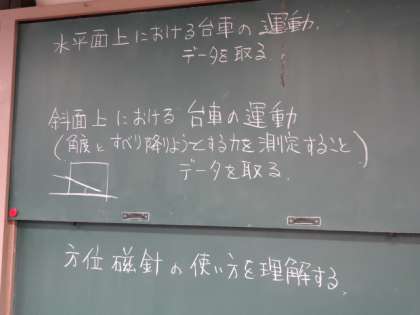 水平面上における台車の運動.
データを取る.
斜面上における台車の運動
(角度とすべり降りようとする力を測定すること)
データを取る.
方位磁針の使い方を理解する.